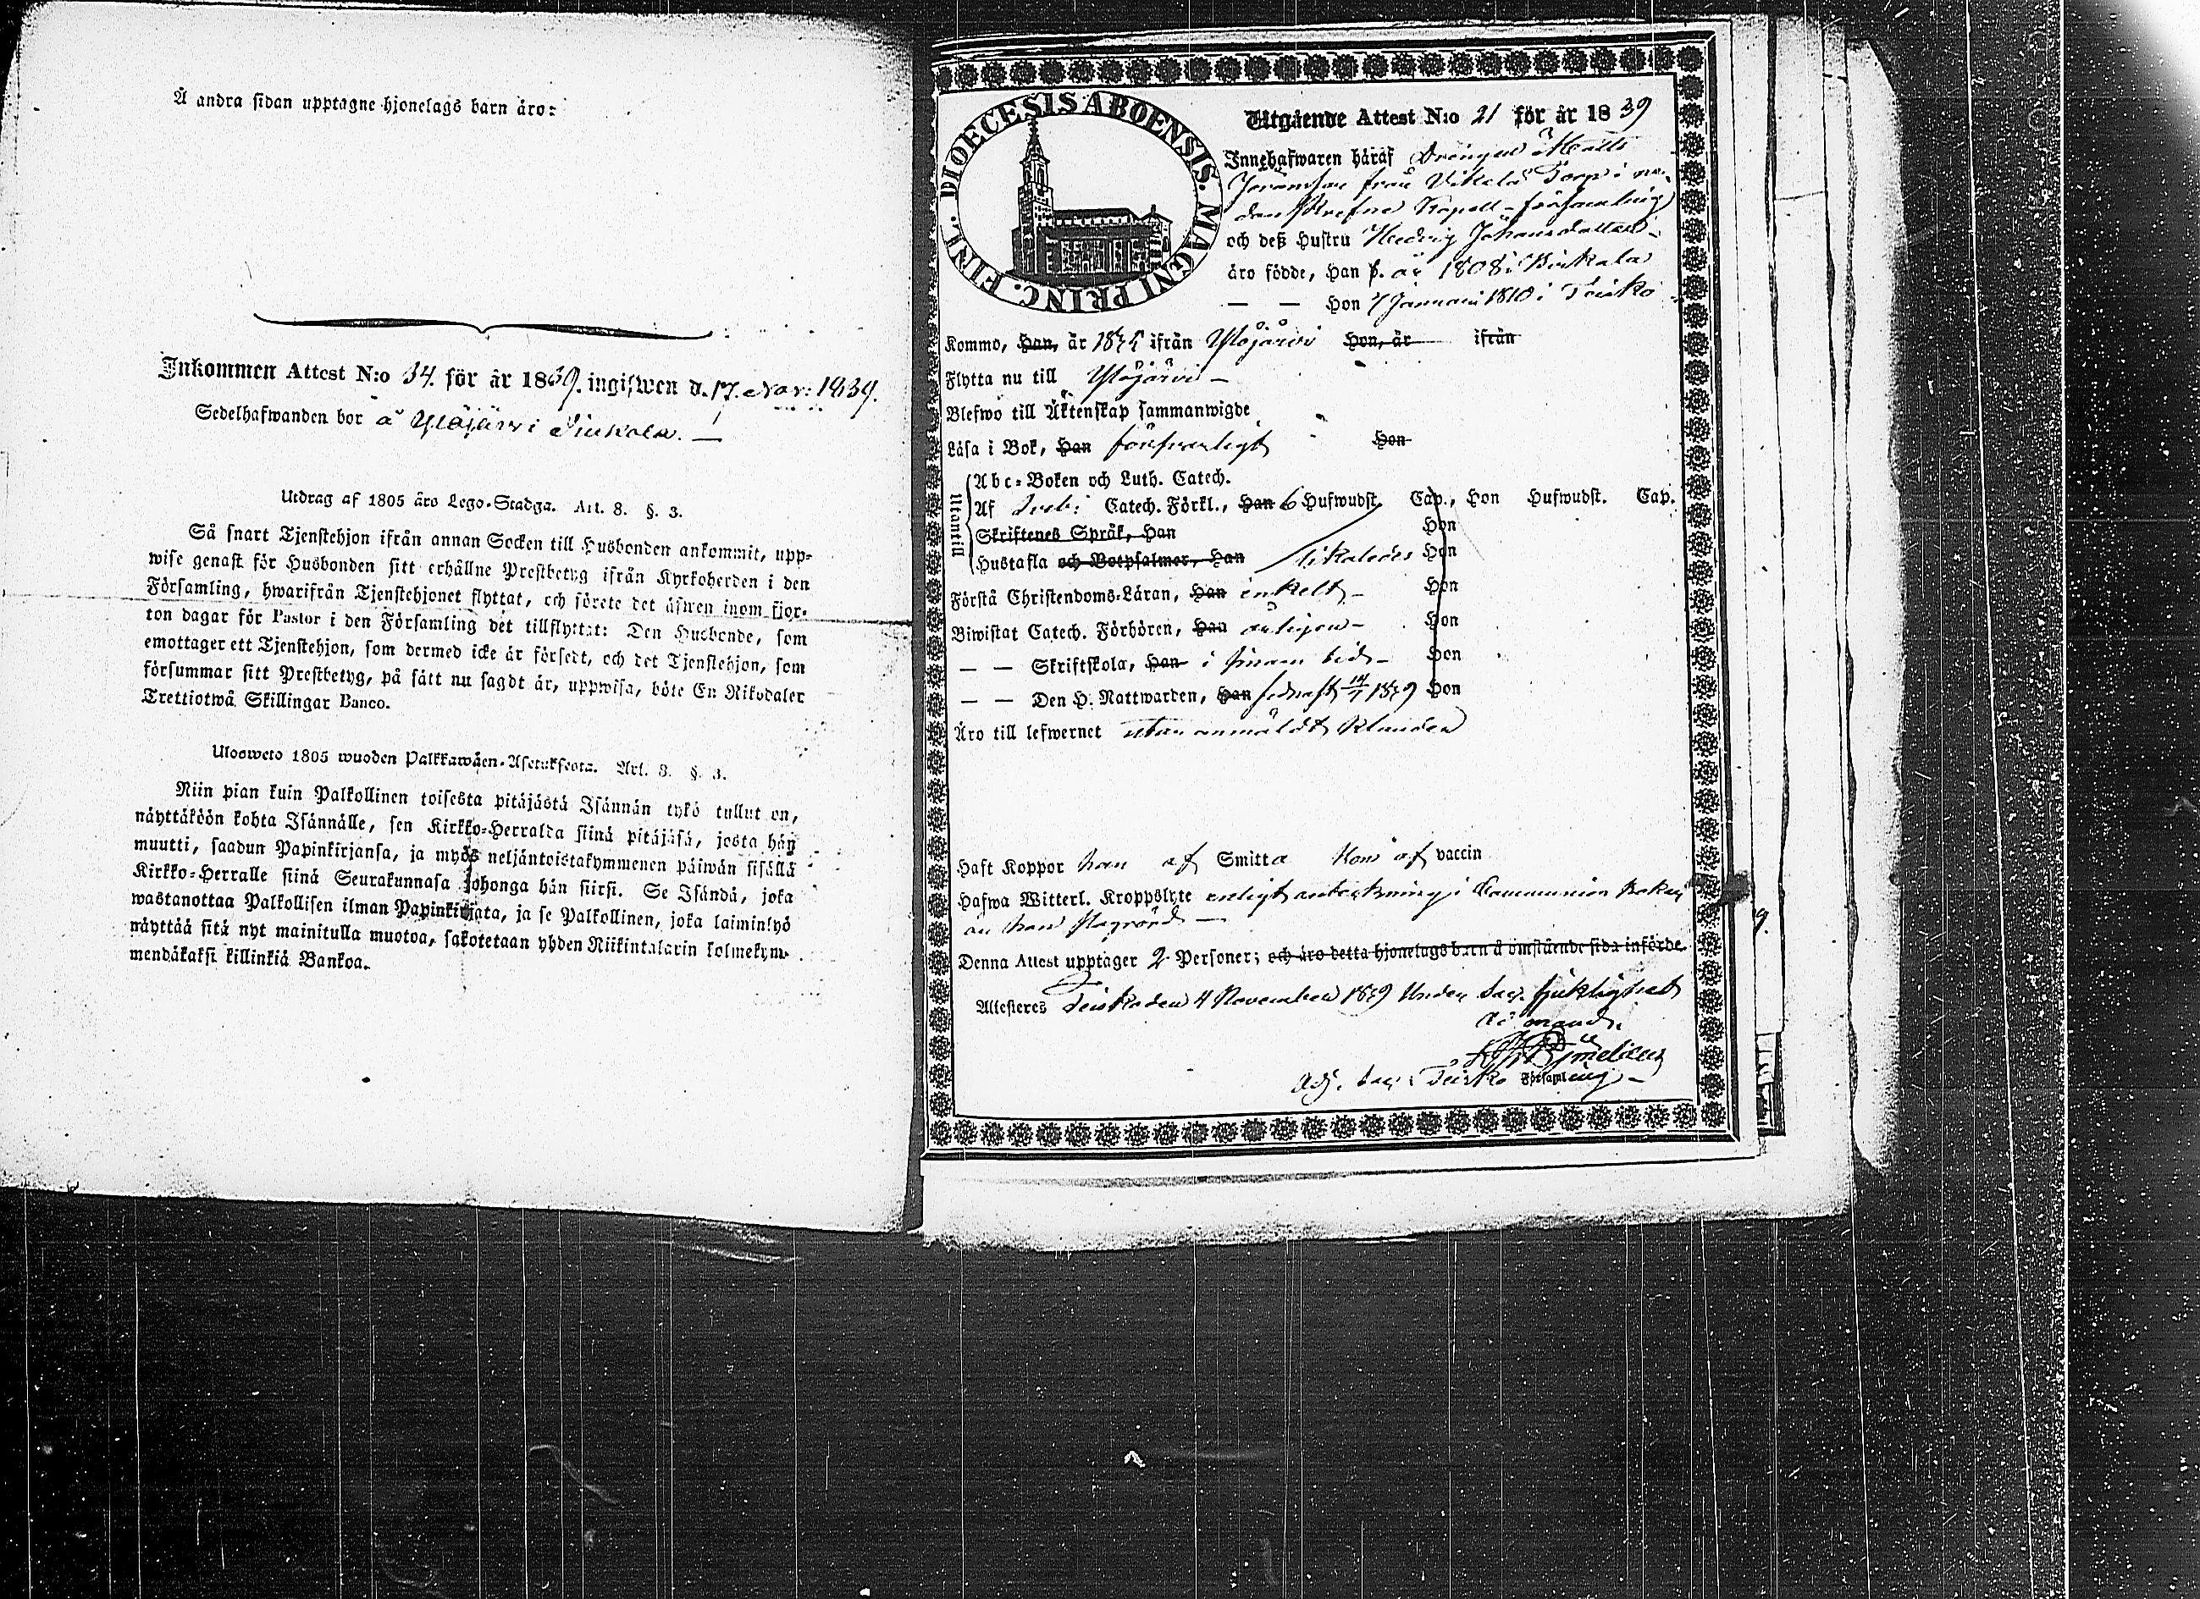 Å andra sidan upptagne hjonelags barn äro:
Inkommen Attest N:o 34. för år 1839. ingifwen d. 17. Nov: 1839.
Sedelhafwanden bor å Ylöjärvi
Utdrag af 1805 års Lego-Stadga. Art. 8. §. 3.
Så snart Tjenstehjon ifrån annan Socken till Husbonden ankommit, upp-
wise genast för Husbonden sitt erhållne Prestbetyg ifrån Kyrkoherden i den
Församling, hwarifrån Tjenstehjonet flyttat, och förete det äfwen inom fjor-
ton dagar för Pastor i den Församling det tillflyttat: Den Husbonde, som
emottager ett Tjenstehjon, som dermed icke är försedt, och det Tjenstehjon, som
försummar sitt Prestbetyg, på sätt nu sagdt är, uppwisa, böte En Riksdaler
Trettiotwå Skillingar Banco.
Ulosweto 1805 wuoden Palkkawäen-Asetuksesta. Art. 8. §. 3.
Niin pian kuin Palkollinen toisesta pitäjästä Isännän tykö tullut on,
näyttäköön kohta Isännälle, sen Kirkko-Herralta siinä pitäjäsä, josta hän
muutti, saadun Papinkirjansa, ja myös neljäntoistakymmenen päiwän sisällä
Kirkko-Herralle siinä Seurakunnasa johonga hän siirsi. Se Isändä, joka
wastanottaa Palkollisen ilman Papinkirjata, ja se Palkollinen, joka laiminlyö
näyttää sitä nyt mainitulla muotoa, sakotetaan yhden Riikintalarin kolmekym-
mendäkaksi killinkiä Bankoa.
DIOECESIS ABOENSIS. MAGNI PRINC. FINL.
Utgående Attest N:o 21 för år 1839
Innehafwaren häraf Drängen Matts
från Torp i ne-
danskrefne Kapell-församling
och deß Hustru Hedvig Johansdotter
äro födde, Han f. år 1808 i Birkala
— — Hon 7 Januari 1810 i Teisko
Kommo, Han, år 1835 ifrån Ylöjärvi Hon, år ifrån
Flytta nu till Ylöjärvi —
Blefwo till Äktenskap sammanwigde
Läsa i Bok, Han försvarligt Hon
Utantill
Abc-Boken och Luth. Catech.
Af Catech. Förkl., Han 6 Hufwudst. Cap., Hon Hufwudst. Cap.
Skriftenes Språk, Han Hon
Hustafla och Botpsalmer, Han likaledes Hon
Förstå Christendoms-Läran, Han enkelt — Hon
Biwistat Catech. Förhören, Han årligen — Hon
— — Skriftskola, Han i sinom tid — Hon
— — Den H. Nattwarden, Han sednast 1839 Hon
Äro till lefwernet utan anmäldt klander
Haft Koppor han af Smitta Hon af vaccin
Hafwa Witterl. Kroppslyte enligt anteckning i Communion Boken
är han
Denna Attest upptager 2 Personer; och äro detta hjonelags barn å omstående sida införde.
Attesteras Teisko den 4 November 1839 Under Sac.
Adj. Sac. i Teisko Församling —